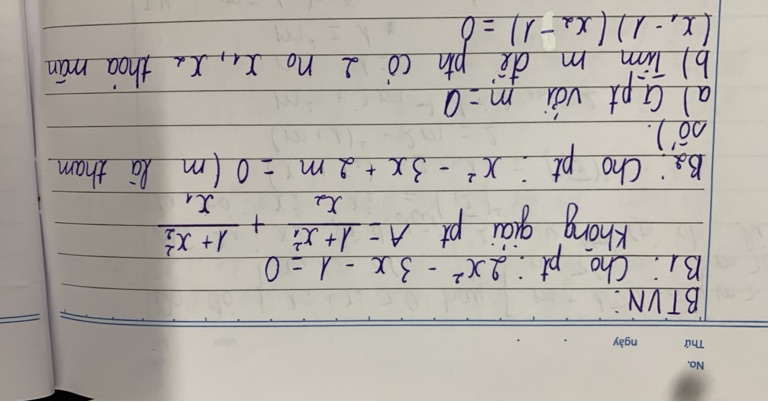 No.
Thứ ngày . .
BTVN:
B1: Cho pt: 2x² - 3x - 1 = 0
Không giải pt A = (1 + x₁²)/x₂ + (1 + x₂²)/x₁
B2: Cho pt: x² - 3x + 2m = 0 (m là tham
số).
a) G pt với m = 0
b) Tìm m để pt có 2 n₀ x₁, x₂ thỏa mãn
(x₁ - 1)(x₂ - 1) = 0